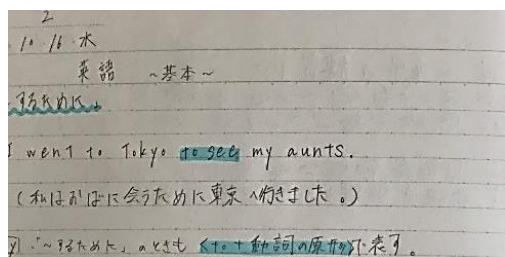 2
10.16.水
英語 ~基本~
~するために」
I went to Tokyo to see my aunts.
(私はおばに会うために東京へ行きました。)
「~するために」のときも<to+動詞の原形>で表す。